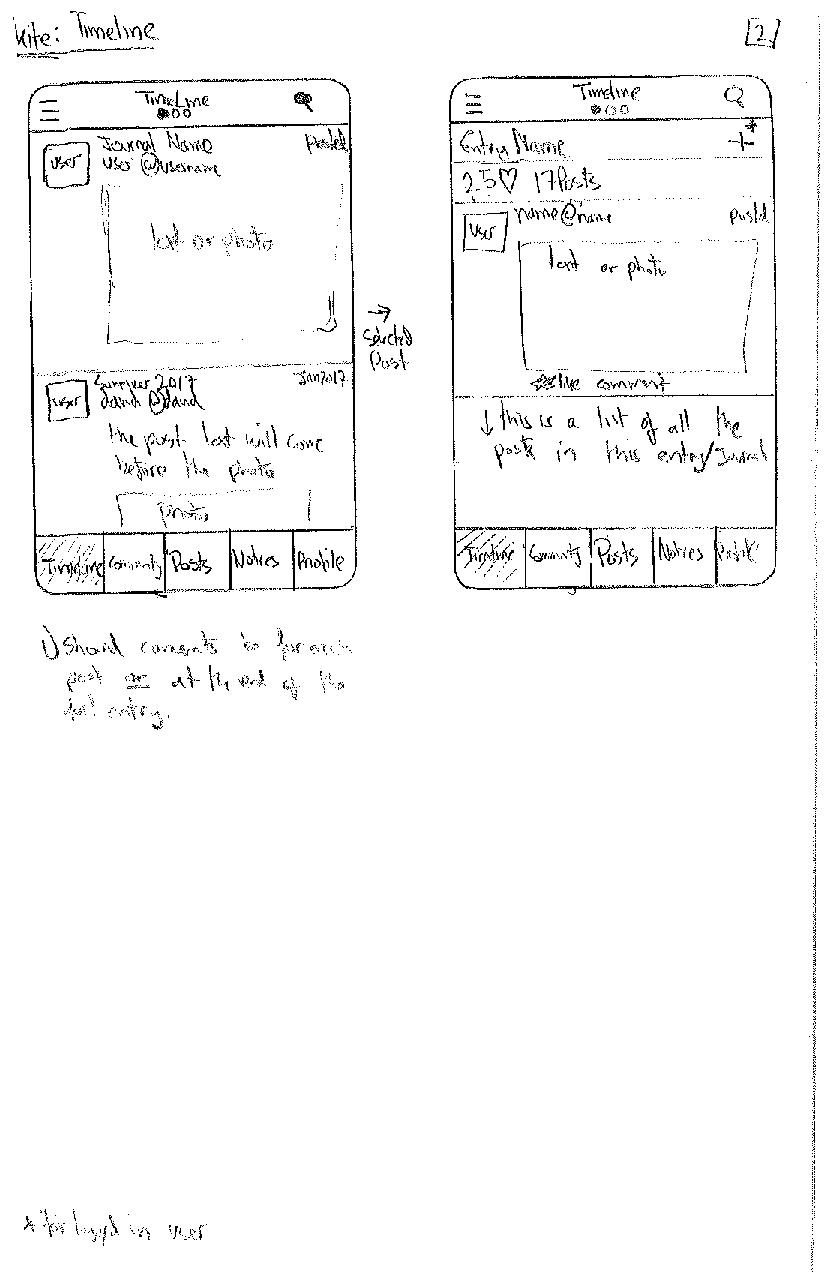 Kite: Timeline
[2]
Timeline
Journal Name
Posted
user
user @username
text or photo
→
Selected
Post
Summer 2017
Jan 2017
user
the post text will come
before the photo
photo
Timeline Community Posts Notices Profile
Timeline
Entry Name +*
25♡ 17 Posts
user
name@name
posted
text or photo
like comment
↓ this is a list of all the
posts in this entry/Journal
Timeline Community Posts Notices Profile
1) Should comments be for each
post or at the end of the
entry.
* for logged in user